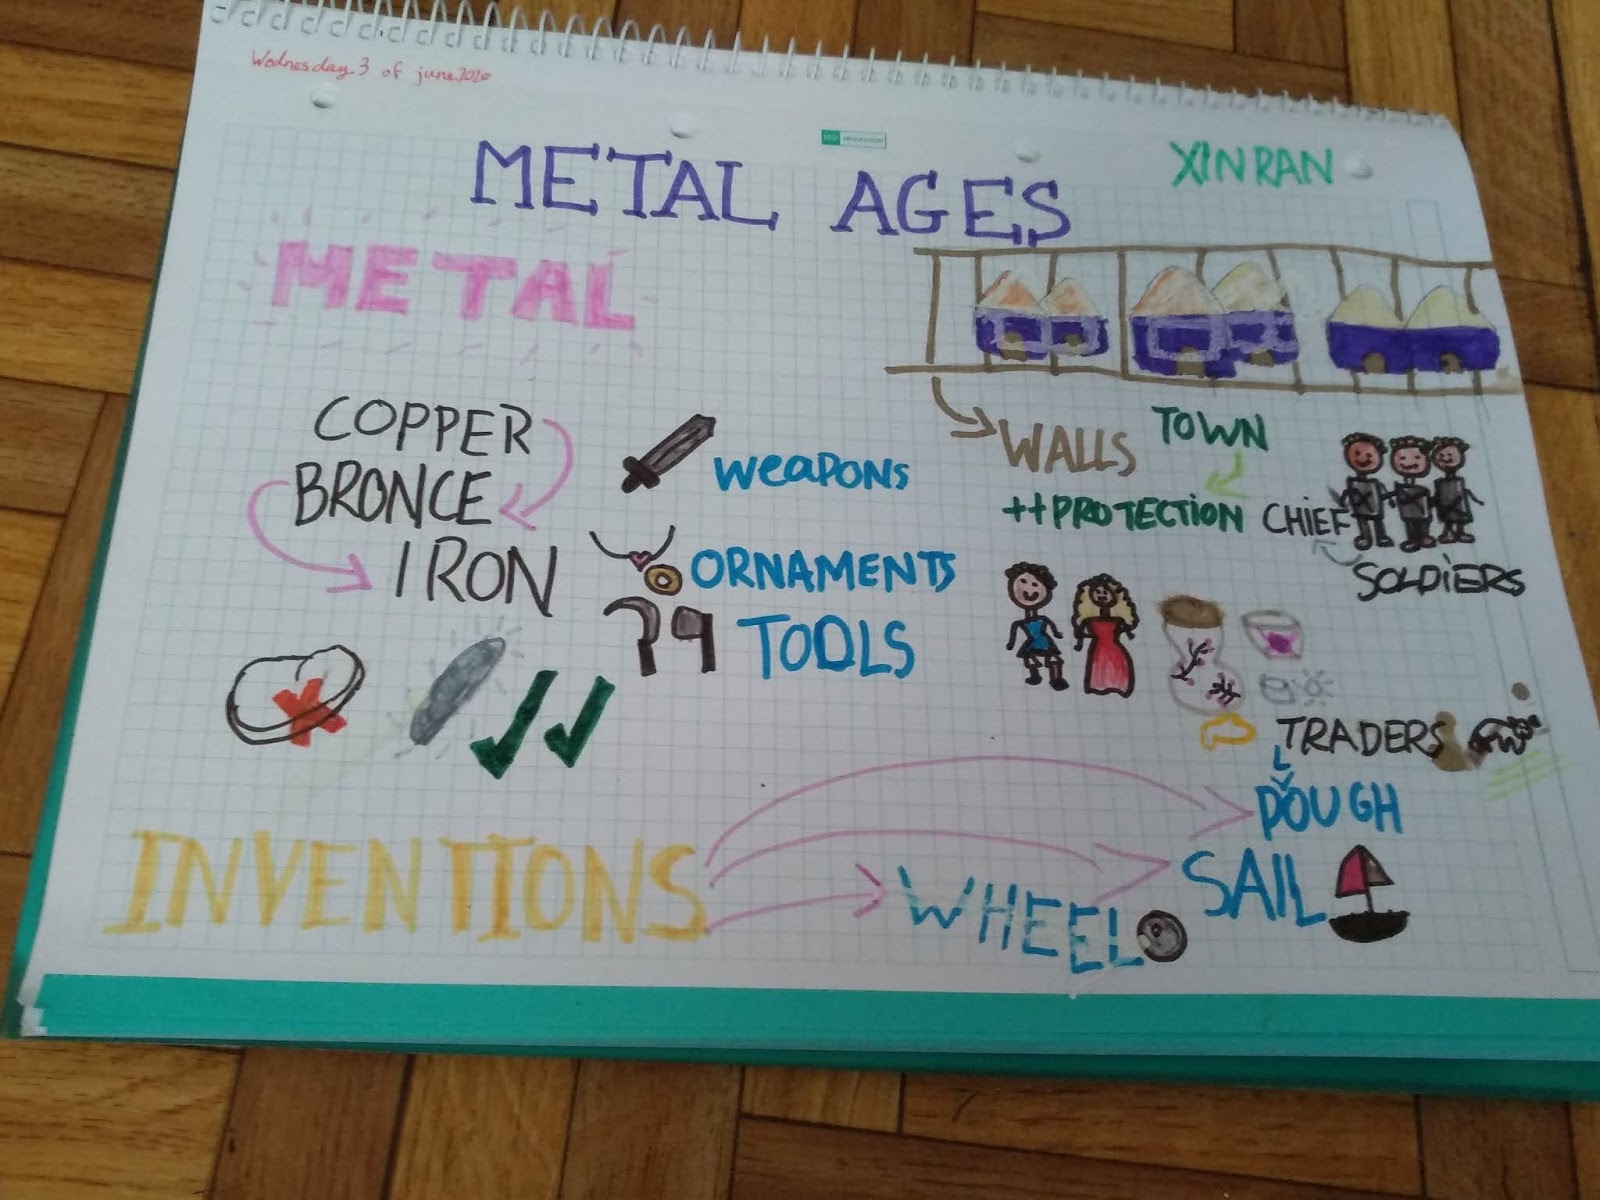 Wednesday.3 of june.2020
METAL AGES
XINRAN
METAL
COPPER
BRONCE
IRON
WEAPONS
ORNAMENTS
TOOLS
WALLS
TOWN
++PROTECTION
CHIEF
SOLDIERS
TRADERS
INVENTIONS
POUGH
SAIL
WHEEL